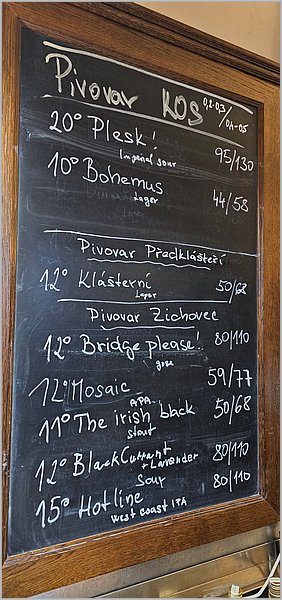 Pivovar KOS 0,2-0,3/0,4-0,5
20° Plesk! 95/130
Imperial sour
10° Bohemus 44/58
Lager
Pivovar Předklášteří
12° Klášterní 50/62
Lager
Pivovar Zichovec
12° Bridge please! 80/110
gose
12° Mosaic 59/77
APA
11° The irish black 50/68
stout
12° BlackCurrant 80/110
+ Lavander
Sour
15° Hotline 80/110
West coast IPA